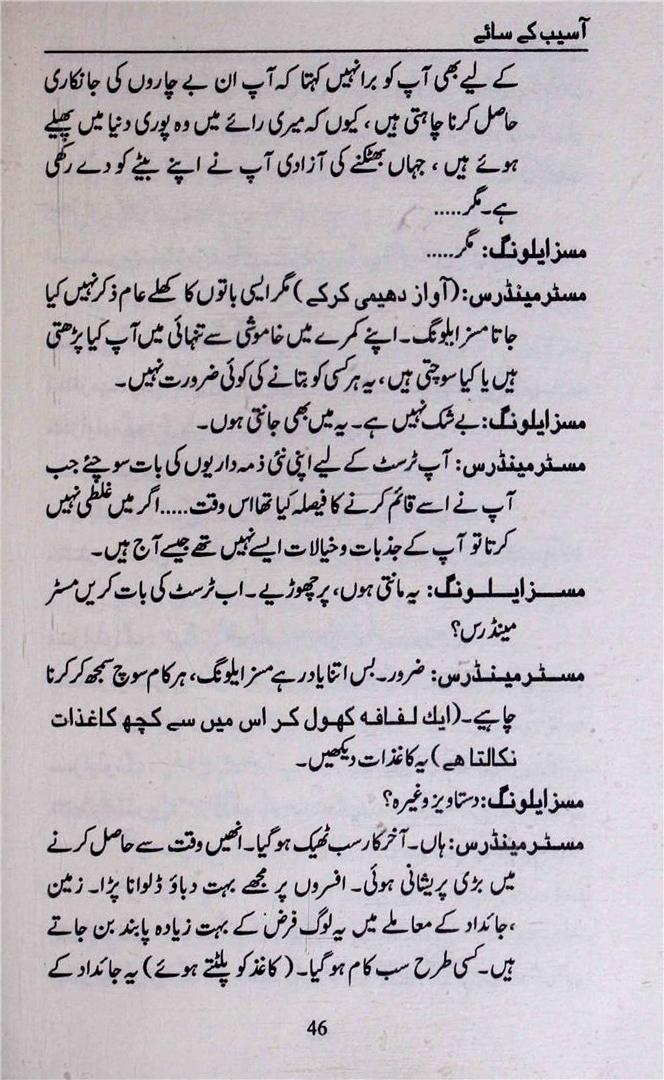 آسیب کے سائے
کے لیے بھی آپ کو برا نہیں کہتا کہ آپ ان بے چاروں کی جانکاری
حاصل کرنا چاہتی ہیں، کیوں کہ میری رائے میں وہ پوری دنیا میں پھیلے
ہوئے ہیں، جہاں بھٹکنے کی آزادی آپ نے اپنے بیٹے کو دے رکھی
ہے۔ مگر.....
مسز ایلونگ: مگر.....
مسٹر مینڈرس: (آواز دھیمی کرکے) مگر ایسی باتوں کا کھلے عام ذکر نہیں کیا
جاتا مسز ایلونگ۔ اپنے کمرے میں خاموشی سے تنہائی میں آپ کیا پڑھتی
ہیں یا کیا سوچتی ہیں، یہ ہر کسی کو بتانے کی کوئی ضرورت نہیں۔
مسز ایلونگ: بے شک نہیں ہے۔ یہ میں بھی جانتی ہوں۔
مسٹر مینڈرس: آپ ٹرسٹ کے لیے اپنی نئی ذمہ داریوں کی بات سوچئے جب
آپ نے اسے قائم کرنے کا فیصلہ کیا تھا اس وقت..... اگر میں غلطی نہیں
کرتا تو آپ کے جذبات و خیالات ایسے نہیں تھے جیسے آج ہیں۔
مسز ایلونگ: یہ مانتی ہوں، پر چھوڑیے۔ اب ٹرسٹ کی بات کریں مسٹر
مینڈرس؟
مسٹر مینڈرس: ضرور۔ بس اتنا یاد رہے مسز ایلونگ، ہر کام سوچ سمجھ کر کرنا
چاہیے۔ (ایک لفافہ کھول کر اس میں سے کچھ کاغذات
نکالتا ہے) یہ کاغذات دیکھیں۔
مسز ایلونگ: دستاویز وغیرہ؟
مسٹر مینڈرس: ہاں۔ آخر کار سب ٹھیک ہو گیا۔ انھیں وقت سے حاصل کرنے
میں بڑی پریشانی ہوئی۔ افسروں پر مجھے بہت دباؤ ڈلوانا پڑا۔ زمین
،جائداد کے معاملے میں یہ لوگ فرض کے بہت زیادہ پابند بن جاتے
ہیں۔ کسی طرح سب کام ہو گیا۔ (کاغذ کو پلٹتے ہوئے) یہ جائداد کے
46